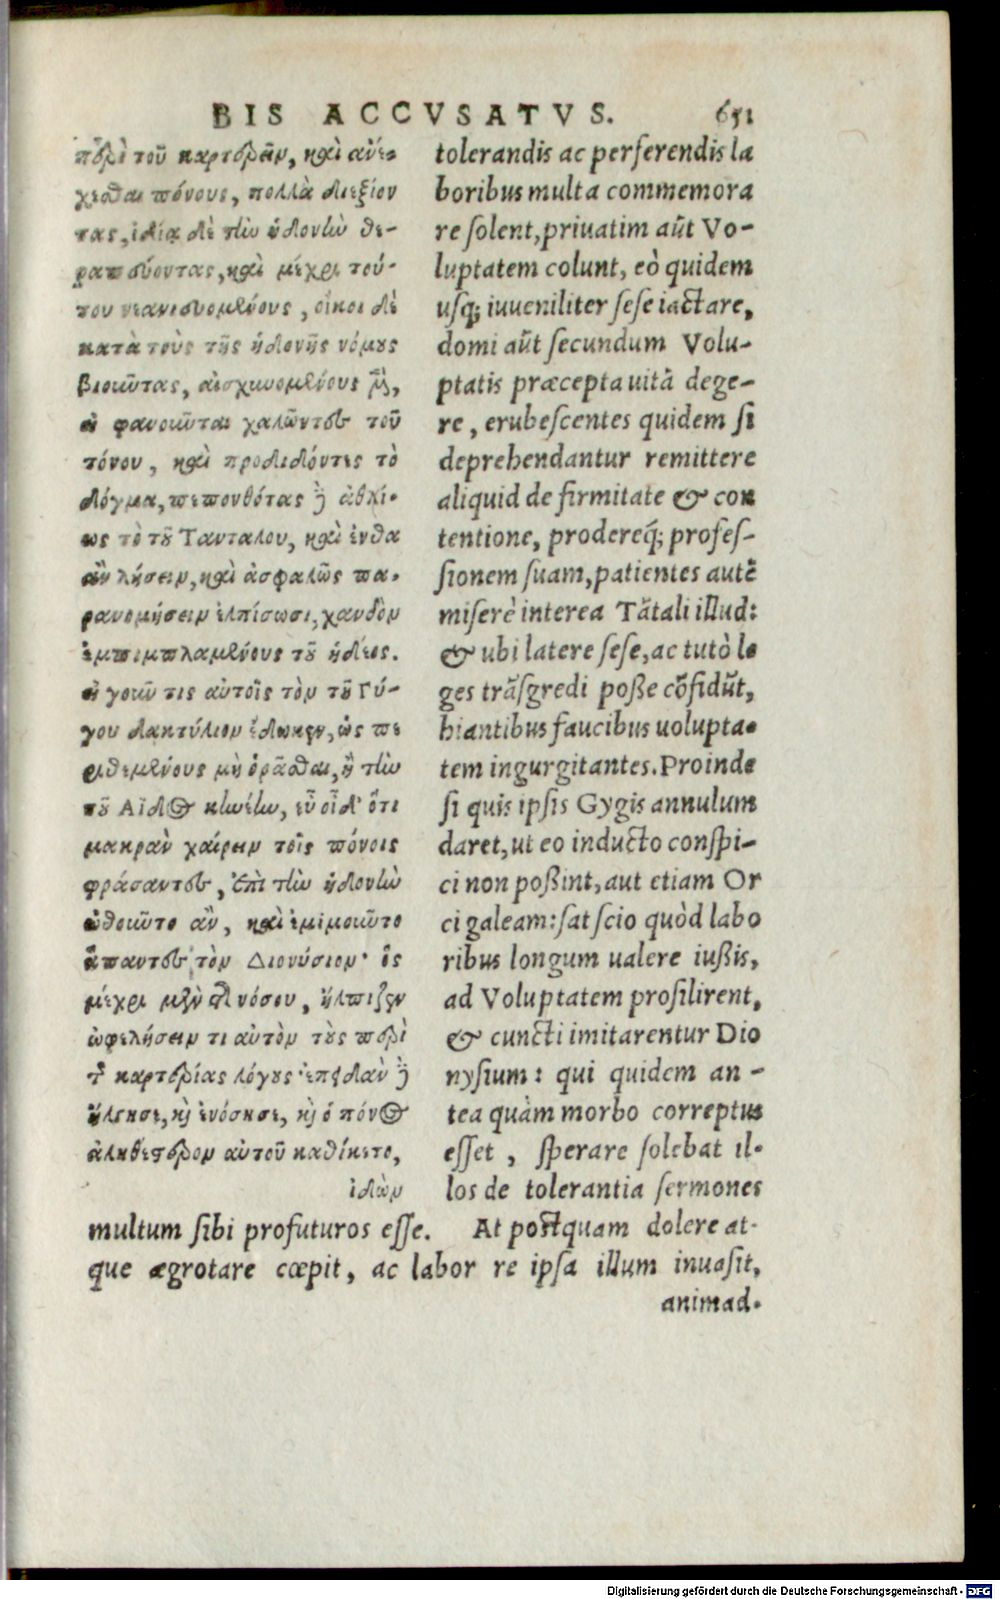 BIS ACCVSATVS. 651
περὶ τοῦ καρτερεῖν, καὶ ἀνέ-
χεσθαι πόνους, πολλὰ διεξίον
τας, ἰδίᾳ δὲ τὴν ἡδονὴν θε-
ραπεύοντας, καὶ μέχρι τού-
του νεανιευομένους, οἴκοι δὲ
κατὰ τοὺς τῆς ἡδονῆς νόμους
βιοῦντας, αἰσχυνομένους μὲν,
εἰ φανοῦνται χαλῶντες τοῦ
τόνου, καὶ προδιδόντες τὸ
δόγμα, πεπονθότας δὲ ἀθλί-
ως τὸ τοῦ Τανταλου, καὶ ἔνθα
ἂν λήσειν, καὶ ἀσφαλῶς πα-
ρανομήσειν ἐλπίσωσι, χανδὸν
ἐμπιμπλαμένους τοῦ ἡδέος.
εἰ γοῦν τις αὐτοῖς τὸν τοῦ Γύ-
γου δακτύλιον ἔδωκεν, ὡς πε
ριθεμένους μὴ ὁρᾶσθαι, ἢ τὴν
τοῦ Αϊδος κυνέην, εὖ οἶδ' ὅτι
μακρὰν χαίρειν τοῖς πόνοις
φράσαντες, ἐπὶ τὴν ἡδονὴν
ὠθοῦντο ἂν, καὶ ἐμιμοῦντο
ἅπαντες τὸν Διονύσιον· ὃς
μέχρι μὲν τῆς νόσου, ἤλπιζεν
ὠφελήσειν τι αὐτὸν τοὺς περὶ
τῆς καρτερίας λόγους· ἐπειδὰν δὲ
ἤλγησε, καὶ ἐνόσησε, καὶ ὁ πόνος
ἀληθέστερον αὐτοῦ καθίκετο,
ἰδὼν
tolerandis ac perferendis la
boribus multa commemora
re solent, priuatim aūt Vo-
luptatem colunt, eò quidem
usq; iuueniliter sese iactare,
domi aūt secundum Volu-
ptatis præcepta uitā dege-
re, erubescentes quidem si
deprehendantur remittere
aliquid de firmitate & con
tentione, prodereq́; profes-
sionem suam, patientes autē
miserè interea Tātali illud:
& ubi latere sese, ac tutò le
ges trāsgredi poße cōfidūt,
hiantibus faucibus uolupta-
tem ingurgitantes. Proinde
si quis ipsis Gygis annulum
daret, ut eo inducto conspi-
ci non poßint, aut etiam Or
ci galeam: sat scio quòd labo
ribus longum ualere iußis,
ad Voluptatem prosilirent,
& cuncti imitarentur Dio
nysium: qui quidem an-
tea quàm morbo correptus
esset, sperare solebat il-
los de tolerantia sermones
multum sibi profuturos esse. At postquam dolere at-
que ægrotare cœpit, ac labor re ipsa illum inuasit,
animad-
Digitalisierung gefördert durch die Deutsche Forschungsgemeinschaft - DFG